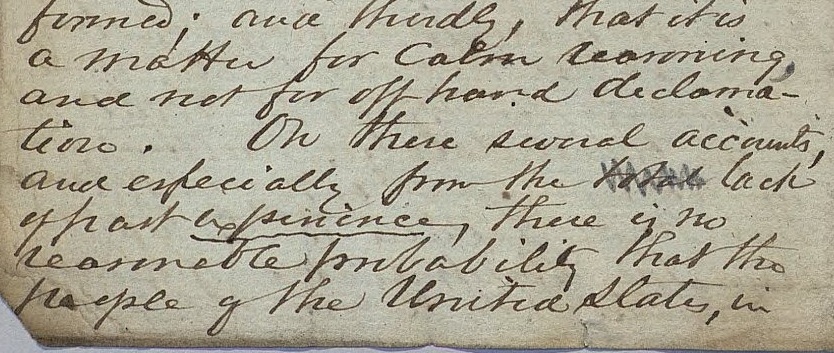 formed; and thirdly, that it is
a matter for calm reasoning,
and not for off hand declama-
tion. On these several accounts,
and especially from the lack
of past experience, there is no
reasonable probability that the
people of the United States, in